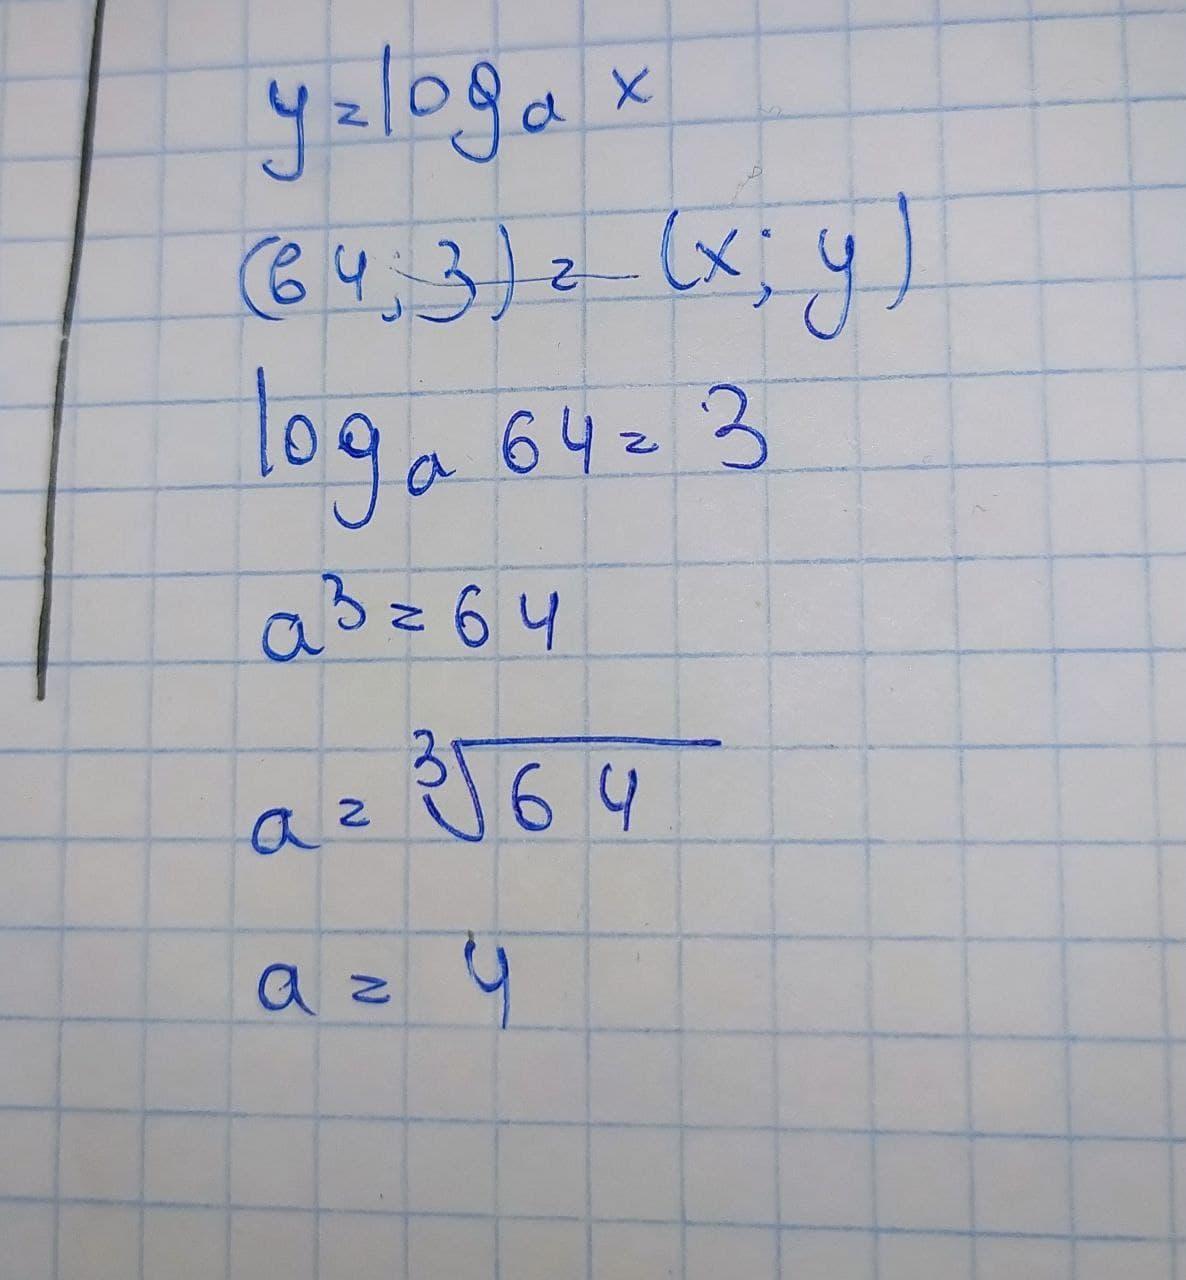 y = logₐ x
(64; 3) = (x; y)
logₐ 64 = 3
a³ = 64
a = ³√64
a = 4